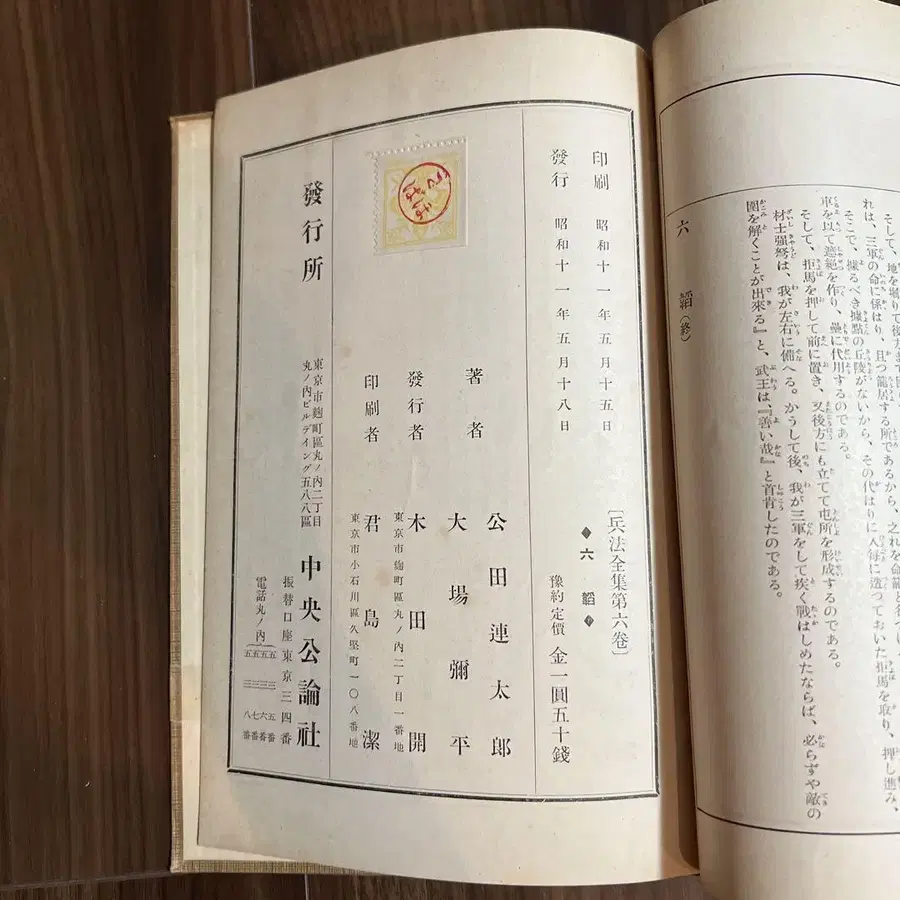 そして、地を堀りて後方ま
れは、三軍の命に係はり、且つ籠居する所であるから、之れを命籠と
そこで、據るべき據點の丘陵がないから、その代はりに人毎に造つておいた拒馬を取り、押し進み、
車を以て遮絶を作り、壘に代用するのである。
そして、拒馬を押して前に置き、又後方にも立てて屯所を形成するのである。
材士强弩は、我が左右に備へる。かうして後、我が三軍をして疾く戰はしめたならば、必らずや敵の
圍を解くことが出來る』と、武王は、『善い哉』と首肯したのである。
六韜(終)
印刷 昭和十一年五月十五日
發行 昭和十一年五月十八日
〔兵法全集第六卷〕
◆六韜◆
豫約定價 金一圓五十錢
著者 公田連太郎
大場彌平
發行者 木田開
東京市麹町區丸ノ內二丁目一番地
印刷者 君島潔
東京市小石川區久堅町一〇八番地
發行所
東京市麹町區丸ノ內二丁目
丸ノ內ビルデイング五八八區
中央公論社
振替口座東京三四番
電話丸ノ內